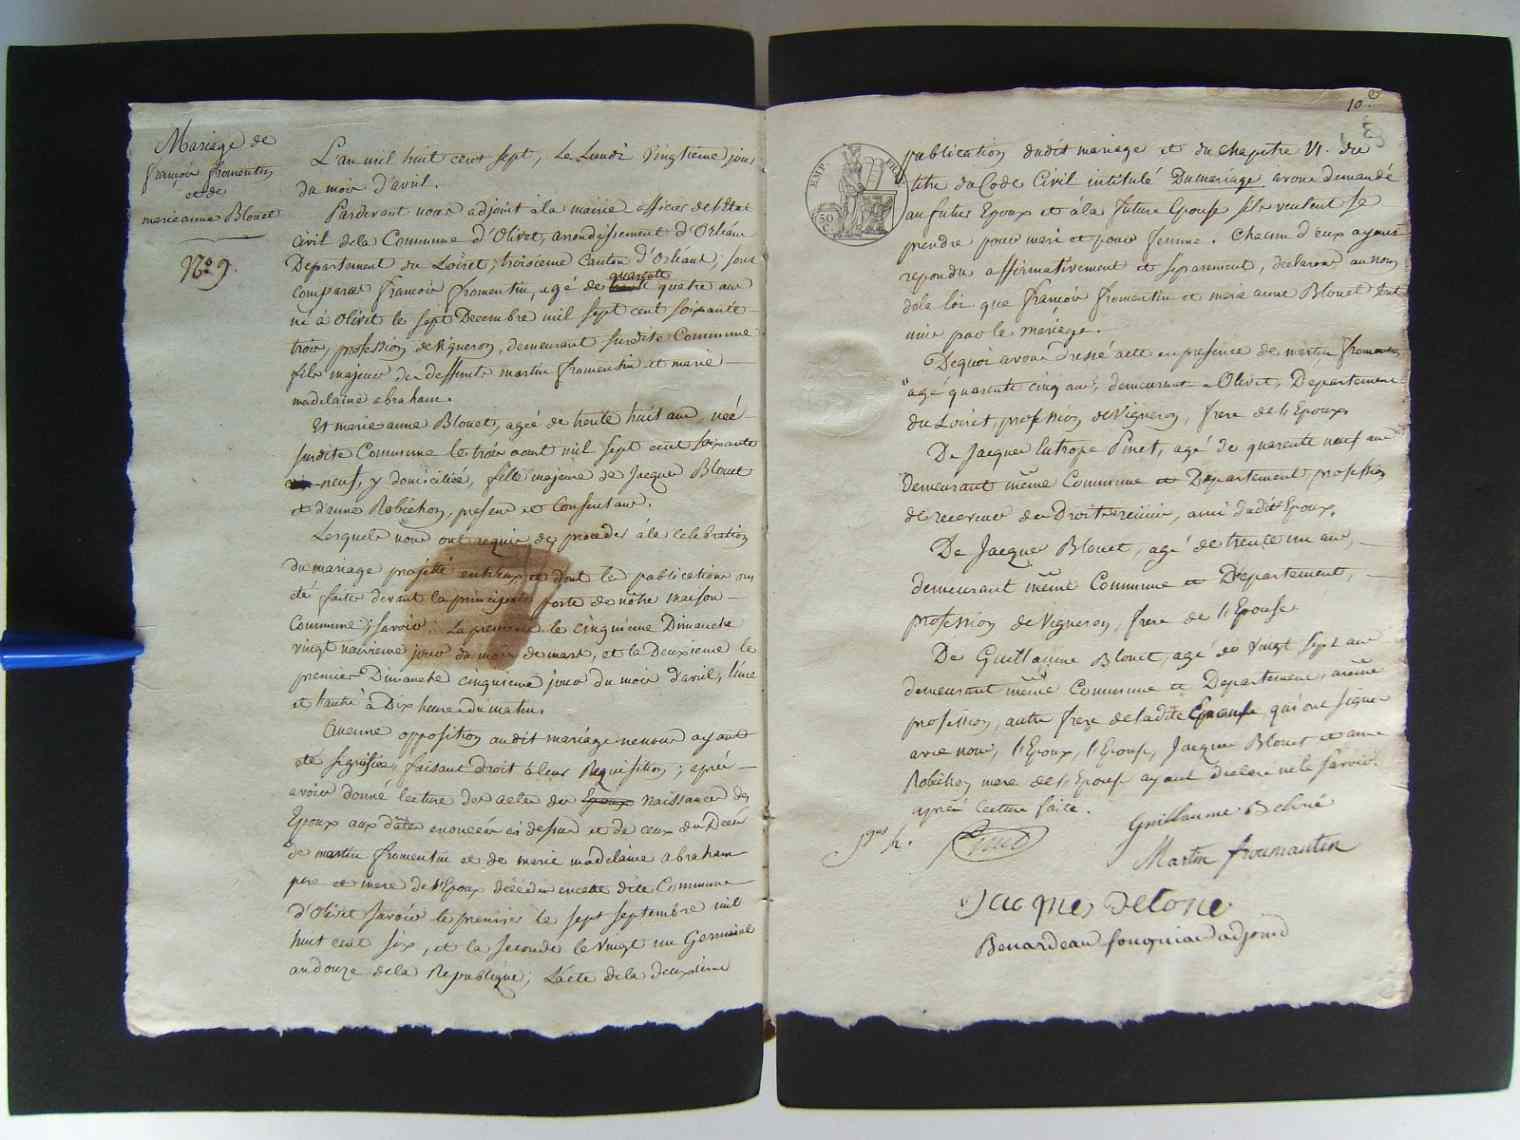 Mariage de
françois fromentin
et de
marie anne Blouet
N.º 9.
L'an mil huit cent sept, le Lundi vingtieme jour
du mois d'avril.
Pardevant nous adjoint à la mairie officier de l'état
Civil de la Commune d'Olivet, arrondissement d'Orléans
Departement du Loiret, troisieme Canton d'Orléans, sont
comparus françois fromentin, agé de quarante quatre ans
né à Olivet le sept Decembre mil sept cent soixante
trois, profession de vigneron, demeurant surdite Commune
fils majeur de deffunts martin fromentin et marie
madelaine abraham.
Et marie anne Blouet, agée de trente huit ans, neé
surdite Commune le trois aout mil sept cent soixante
neuf, y domiciliée, fille majeure de Jacques Blouet
et d'anne Robichon, presens et Consentans.
Lesquels nous ont requis de proceder à la celebration
du mariage projetté entr'eux et dont les publications ont
été faites devant la principale porte de nôtre maison
Commune; savoir: La premiere le cinquieme Dimanche
vingt neuvieme jour du mois de mars, et la Deuxieme le
premier Dimanche cinquieme jour du mois d'avril, l'une
et l'autre à Dix heures du matin.
Aucune opposition audit mariage ne nous ayant
été signifiée, faisant droit à leur Requisition; aprés
avoir donné lecture des actes de Epoux naissance des
Epoux aux dâtes enoncées ci dessus et de ceux du Decès
de martin fromentin et de marie madelaine abraham
pere et mere de l'Epoux décédés en cette dite Commune
d'Olivet savoir le premier le sept septembre mil
huit cent six, et la seconde le vingt un Germinal
an douze de la Republique; L'acte de la deuxieme
10.e
EMP. FRA.
50 C
publication dudit mariage et du chapitre VI. du
titre du Code Civil intitulé Du mariage avons demandé
au futur Epoux et à la future Epouse s'ils veulent se
prendre pour mari et pour femme. Chacun d'eux ayant
repondu affirmativement et separement, declarons au nom
de la loi que françois fromentin et marie anne Blouet sont
unis par le mariage.
De quoi avons dressé acte en presence de martin fromentin
agé quarante cinq ans, demeurant à Olivet, Departement
du Loiret, profession de Vigneron, frere de l'Epoux
De Jacques Eutrope Pinet, agé de quarente neuf ans
demeurant même Commune et Departement profession
de receveur des Droits reunis, ami dudit Epoux.
De Jacques Blouet, agé de trente un ans,
demeurant même Commune et Departement,
profession de vigneron, frere de l'Epouse
De Guillaume Blouet, agé de vingt sept ans
demeurant même Commune et Departement, même
profession, autre frere de ladite Epouse qui ont signé
avec nous, l'Epoux, l'Epouse, Jacques Blouet et anne
Robichon mere de l'Epouse ayant declaré ne le savoir.
aprés lecture faite.
Guillaume
Pinet
Martin froumantin
Jacques
adjoint